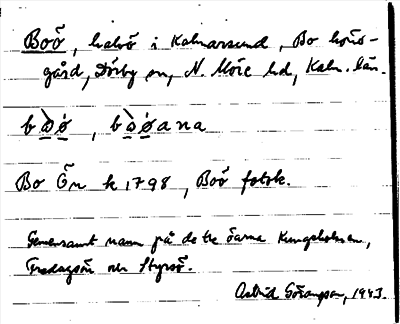 Boö, halvö i Kalmarsund, Bo hus-
gård, Dörby sn, N. Möre hd, Kalm. län.
bo̱ø̱, bo̱ø̱ana
Bo Ön k 1798, Boö folok.
Gemensamt namn på de tre öarna Kungsholmen,
Fredagsön och Styrsö.
Astrid Göransson, 1943.